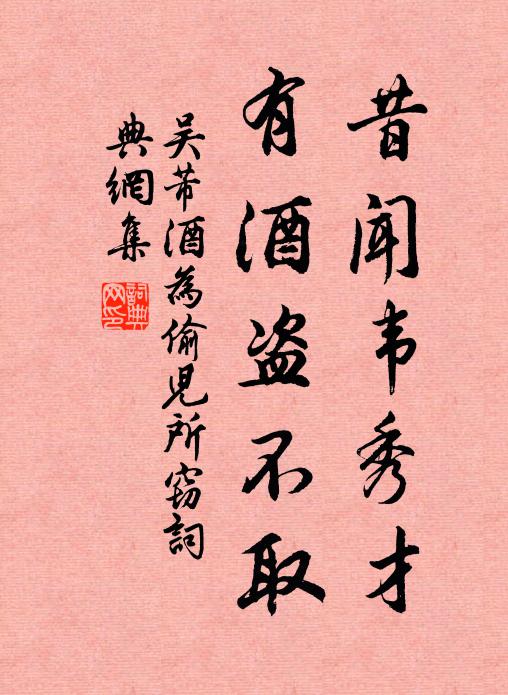 昔闻韦秀才
有酒盗不取
吴芾酒為偷児所窃詞
典網集
詞典
网印